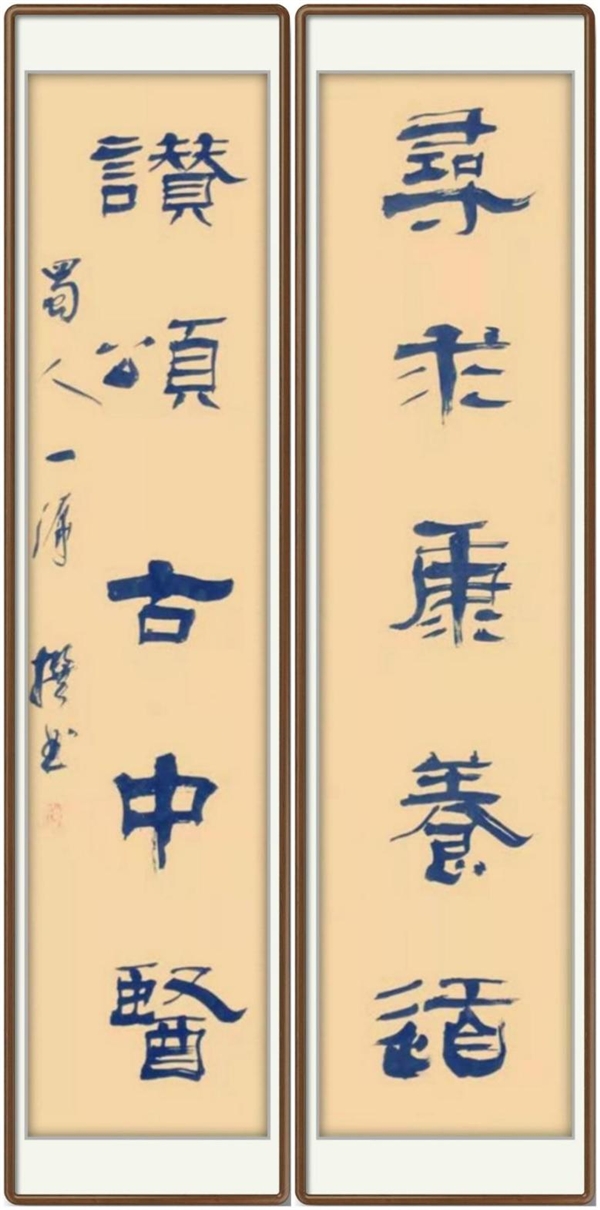 尋求康養道
讃頌古中醫
蜀人一
撰书